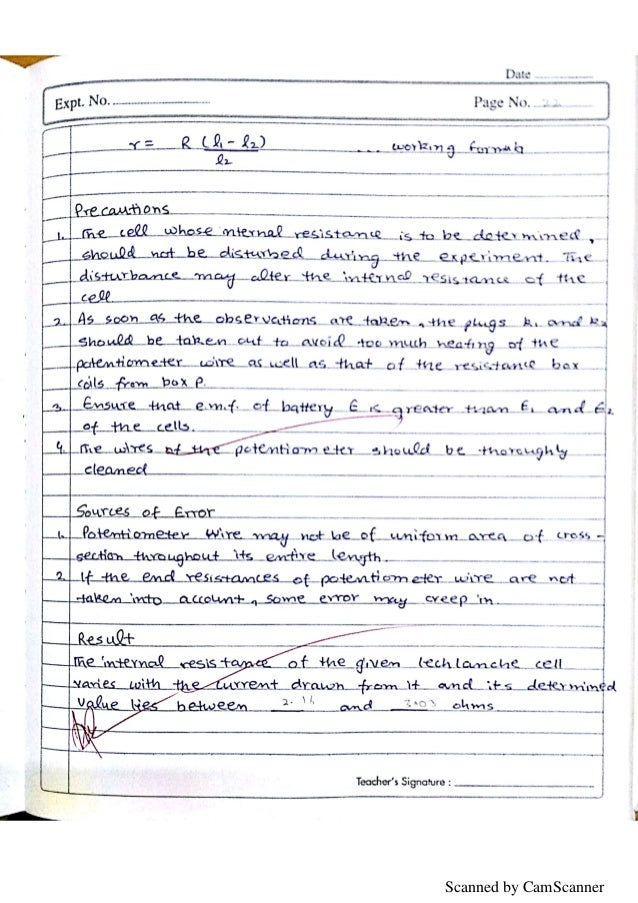 Date
Expt. No.
Page No. 22
r = R (l1 - l2)
l2
... working formula
Precautions
1. The cell whose internal resistance is to be determined,
should not be disturbed during the experiment. The
disturbance may alter the internal resistance of the
cell.
2. As soon as the observations are taken, the plugs k1 and k2
should be taken out to avoid too much heating of the
potentiometer wire as well as that of the resistance box
coils from box P.
3. Ensure that e.m.f. of battery E is greater than E1 and E2
of the cells.
4. The wires of the potentiometer should be thoroughly
cleaned
Sources of Error
1. Potentiometer wire may not be of uniform area of cross-
section throughout its entire length.
2. If the end resistances of potentiometer wire are not
taken into account, some error may creep in.
Result
The internal resistance of the given lechlanche cell
varies with the current drawn from it and its determined
value lies between and 3.03 ohms
Teacher's Signature :
Scanned by CamScanner